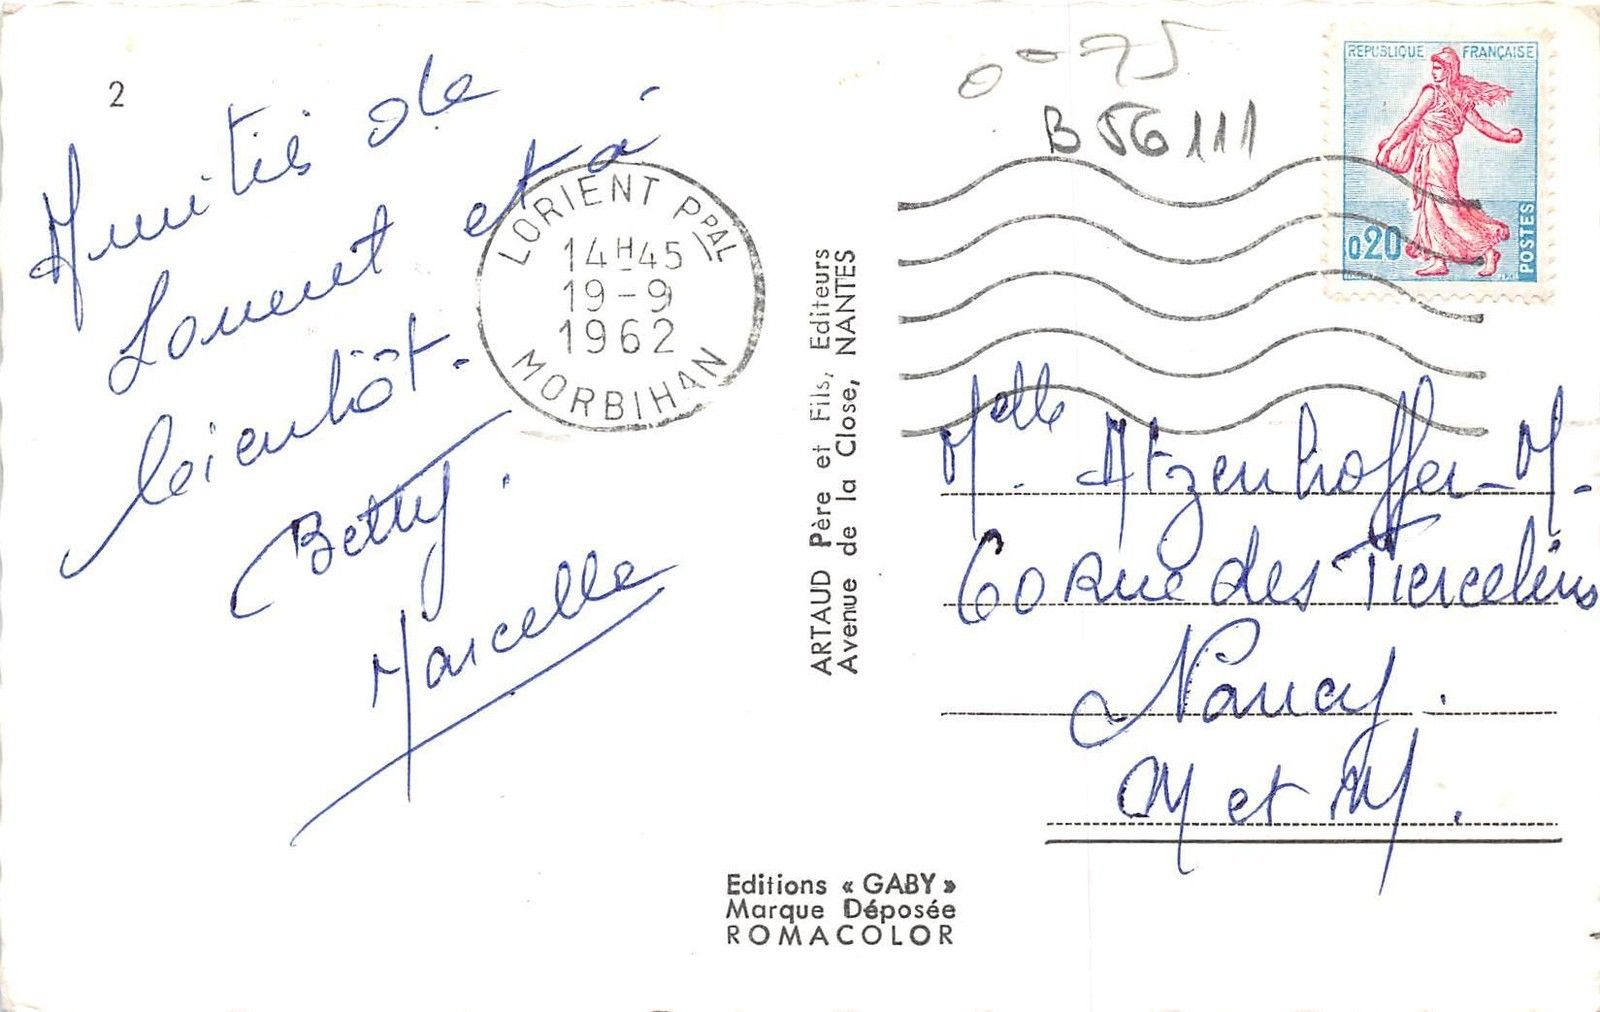 2
Amitiés de
Lorient et à
bientôt.
Betty.
Marcelle
LORIENT PPAL
14H45
19-9
1962
MORBIHAN
ARTAUD Père et Fils, Editeurs
Avenue de la Close, NANTES
Editions « GABY »
Marque Déposée
ROMACOLOR
0-75
B 56 111
REPUBLIQUE FRANÇAISE
0,20
POSTES
Melle. Atzenhoffer-M.
60 Rue des Tiercelins
Nancy.
M et M.